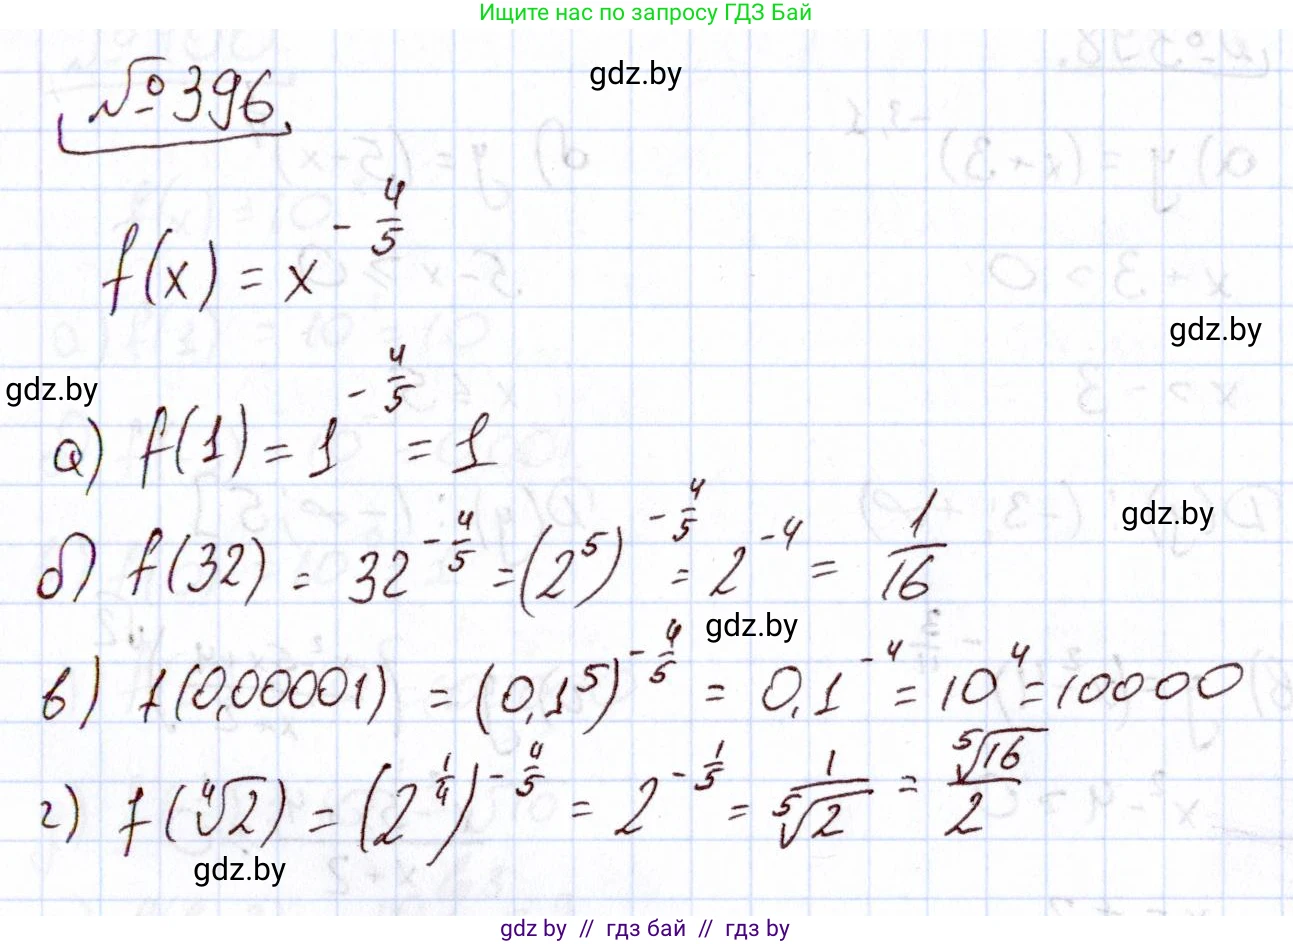 Ищите нас по запросу ГДЗ Бай
№396
gdz.by
f(x) = x^{-4/5}
gdz.by
gdz.by
а) f(1) = 1^{-4/5} = 1
gdz.by
б) f(32) = 32^{-4/5} = (2^5)^{-4/5} = 2^{-4} = 1/16
gdz.by
в) f(0,00001) = (0,1^5)^{-4/5} = 0,1^{-4} = 10^4 = 10000
г) f(⁴√2) = (2^{1/4})^{-4/5} = 2^{-1/5} = 1/⁵√2 = ⁵√16/2
gdz.by
gdz.by // гдз бай // gdz.by